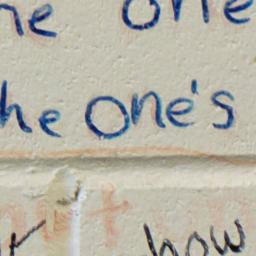 he one
he one's
how